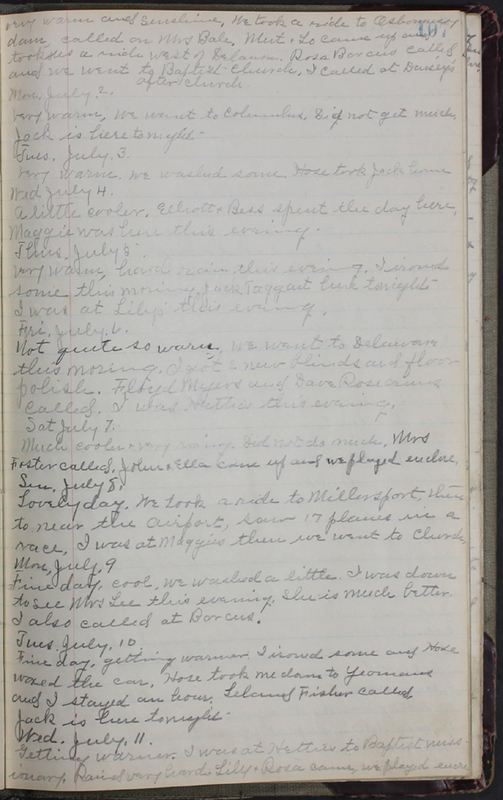 107
very warm and Sunshine, We took a ride to Osbornes
dam called on Mrs Bale, Mut & Lo came up and
took us a ride west of Delaware. Rosa Barcus called
and we went to Baptist Church, I called at Daisey's
after church
Mon. July 2.
Very warm, We went to Columbus, Did not get much,
Jack is here tonight
Tues. July. 3.
Very warm. We washed some Hose took Jack home
Wed July 4.
A little cooler. Elliott & Bess spent the day here,
Maggie was here this evening.
Thurs. July 5.
Very warm, hard rain this evening. I ironed
some this morning, Jack Taggart here tonight
I was at Lily's this evening.
Fri. July. 6.
Not quite so warm, We went to Delaware
this morning. I got 2 new blinds and floor
polish. Floyd Myers and Dave Rosecrans
called. I was Hetties this evening.
Sat July 7.
Much cooler & very rainy. Did not do much, Mrs
Foster called, John & Ella came up and we played euchre,
Sun. July 8.
Lovely day. We took a ride to Millersport, then
to near the airport, saw 17 planes in a
race, I was at Maggies then we went to Church
Mon. July, 9
Fine day, cool, we washed a little. I was down
to see Mrs Lee this evening. She is much better.
I also called at Barcus.
Tues. July, 10
Fine day, getting warmer. I ironed some and Hose
waxed the car, Hose took me down to Yeomans
and I stayed an hour, Leland Fisher called
Jack is here tonight
Wed. July, 11.
Getting warmer. I was at Hetties to Baptist miss-
ionary. Rained very hard. Lily & Rosa came, we played euch